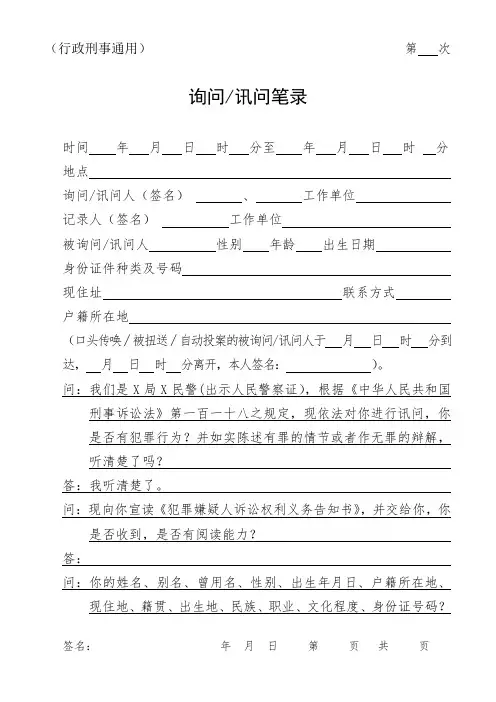 （行政刑事通用） 第___次
询问/讯问笔录
时间___年___月___日___时___分至___年___月___日___时___分
地点___
询问/讯问人（签名）___、___工作单位___
记录人（签名）___工作单位___
被询问/讯问人___性别___年龄___出生日期___
身份证件种类及号码___
现住址___联系方式___
户籍所在地___
（口头传唤/被扭送/自动投案的被询问/讯问人于___月___日___时___分到
达，___月___日___时___分离开，本人签名：___）。
问：我们是X局X民警(出示人民警察证），根据《中华人民共和国
刑事诉讼法》第一百一十八之规定，现依法对你进行讯问，你
是否有犯罪行为？并如实陈述有罪的情节或者作无罪的辩解，
听清楚了吗？
答：我听清楚了。
问：现向你宣读《犯罪嫌疑人诉讼权利义务告知书》，并交给你，你
是否收到，是否有阅读能力？
答：
问：你的姓名、别名、曾用名、性别、出生年月日、户籍所在地、
现住地、籍贯、出生地、民族、职业、文化程度、身份证号码？
签名： 年 月 日 第 页 共 页